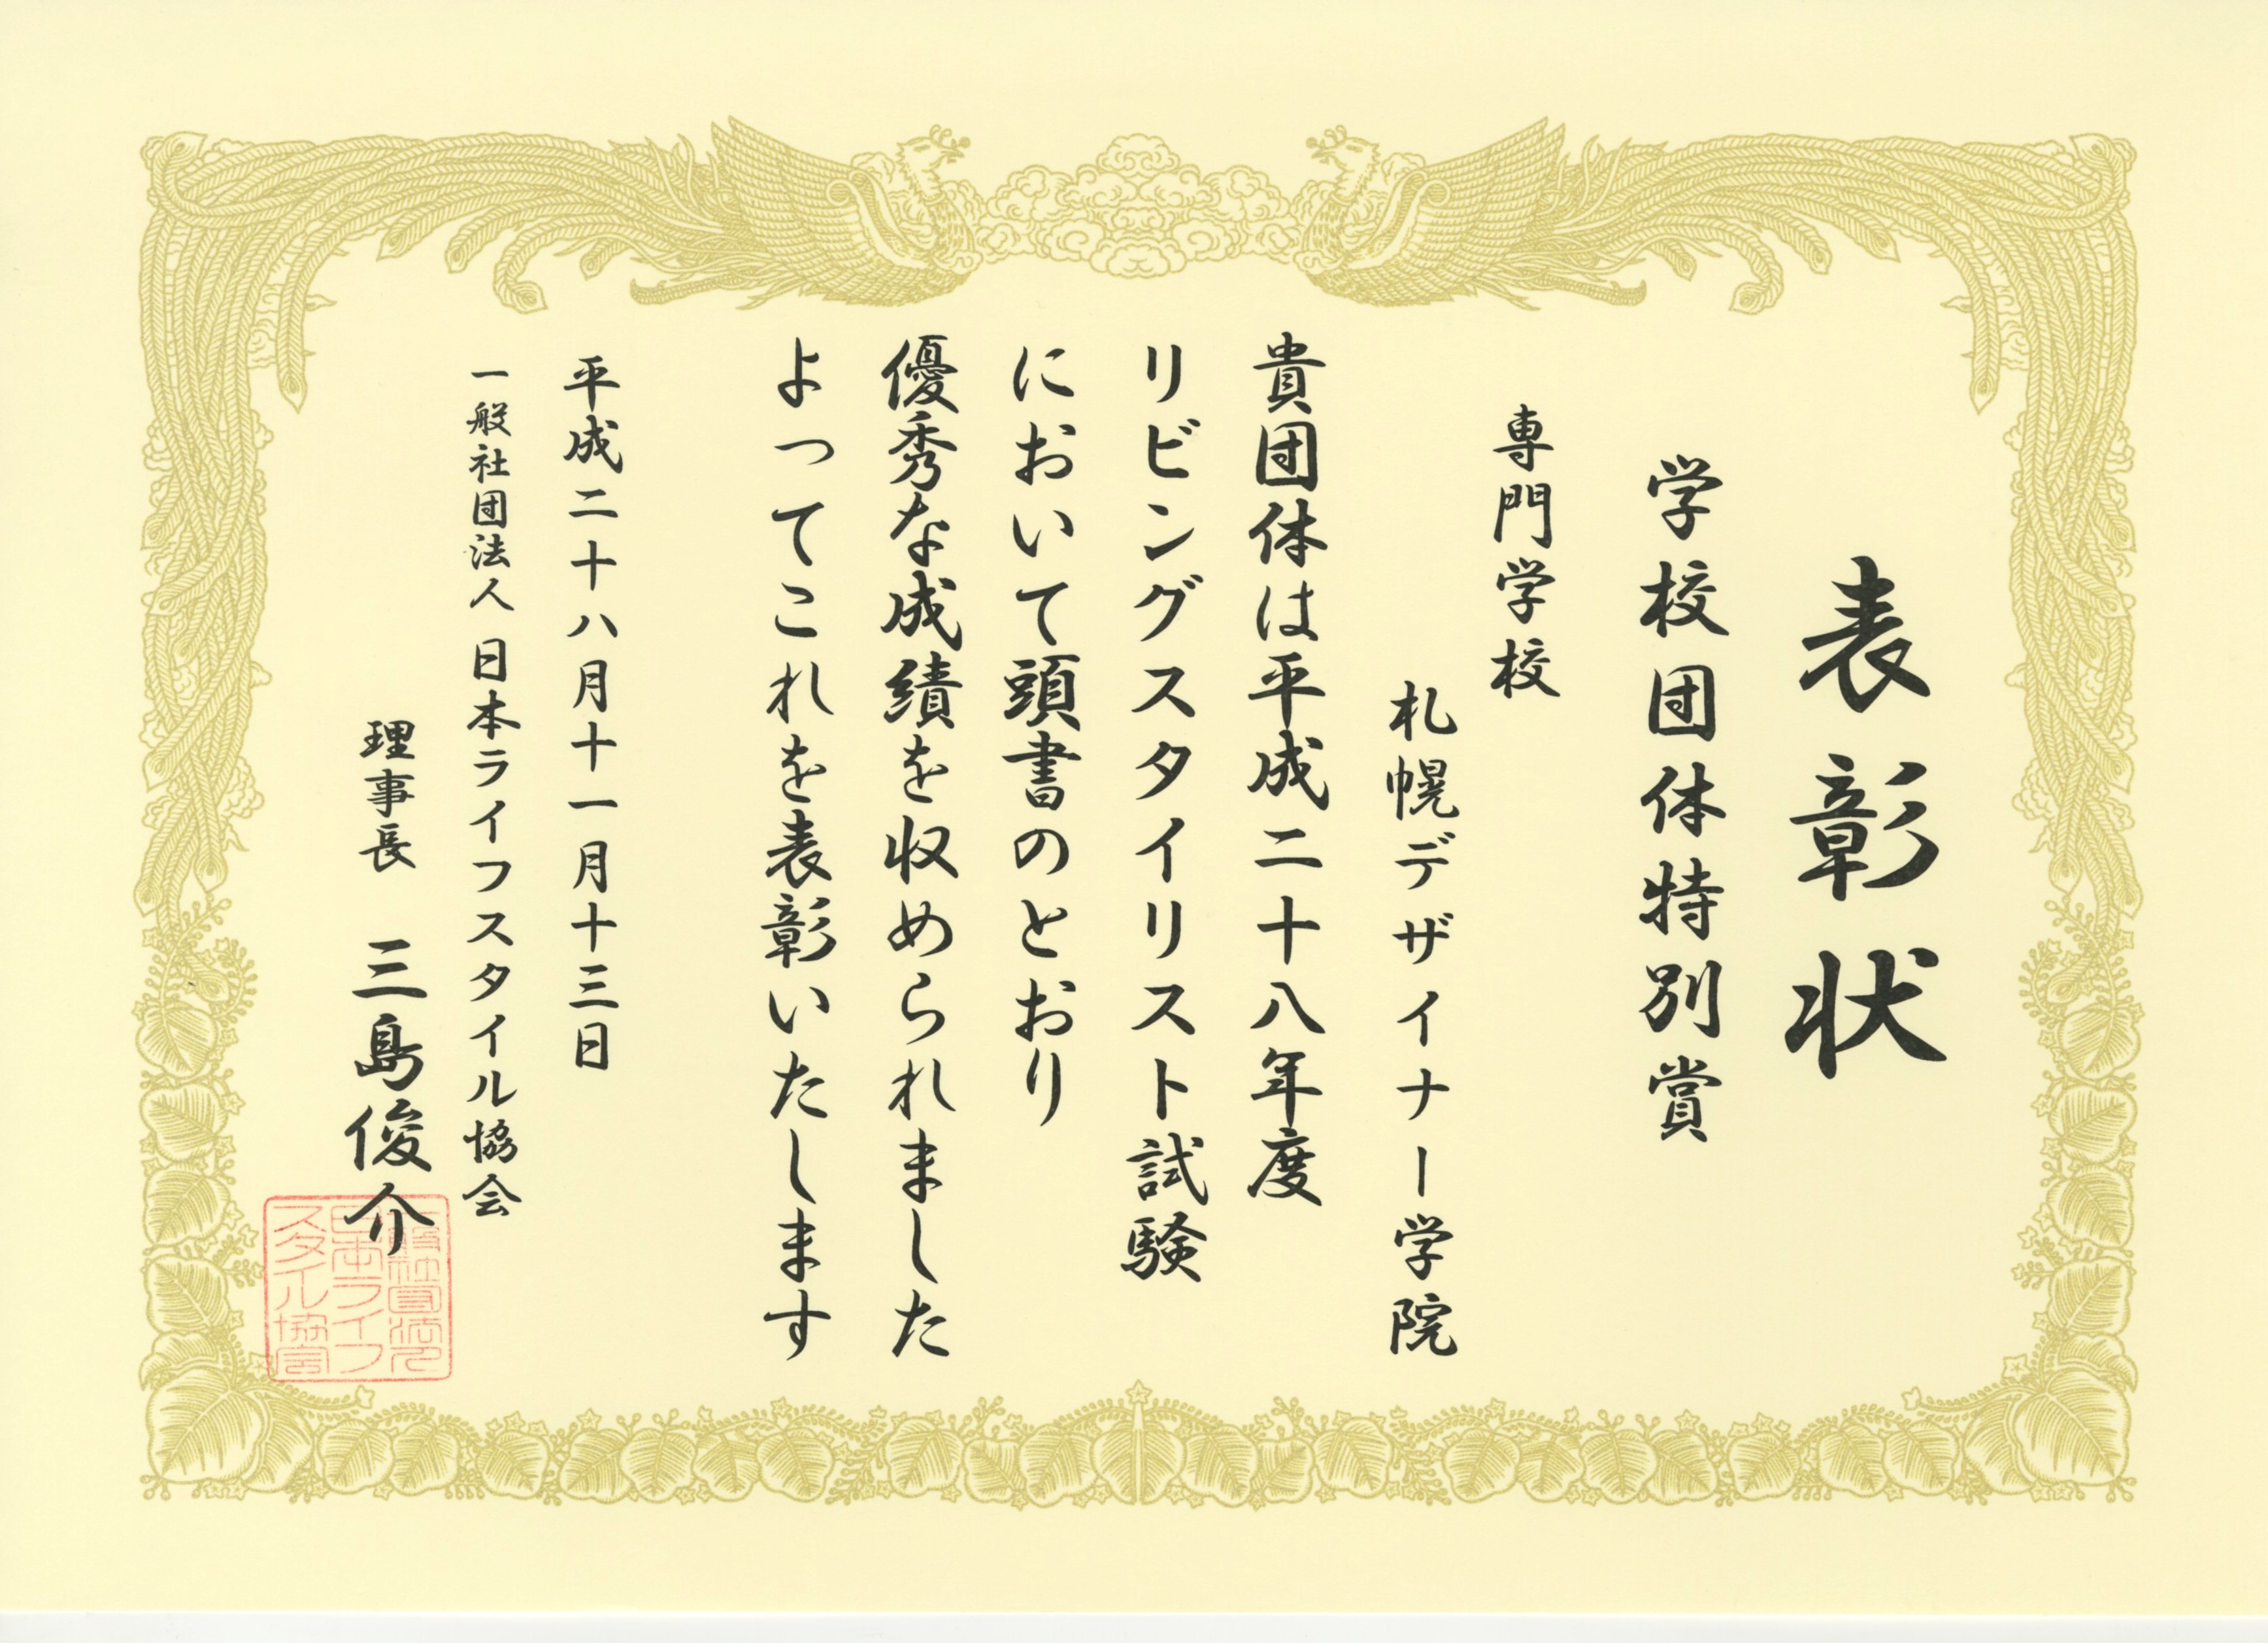 表彰状
学校団体特別賞
専門学校
札幌デザイナー学院
貴団体は平成二十八年度
リビングスタイリスト試験
において頭書のとおり
優秀な成績を収められました
よってこれを表彰いたします
平成二十八月十一月十三日
一般社団法人 日本ライフスタイル協会
理事長 三島俊介
一般社団法人
日本ライフ
スタイル協会